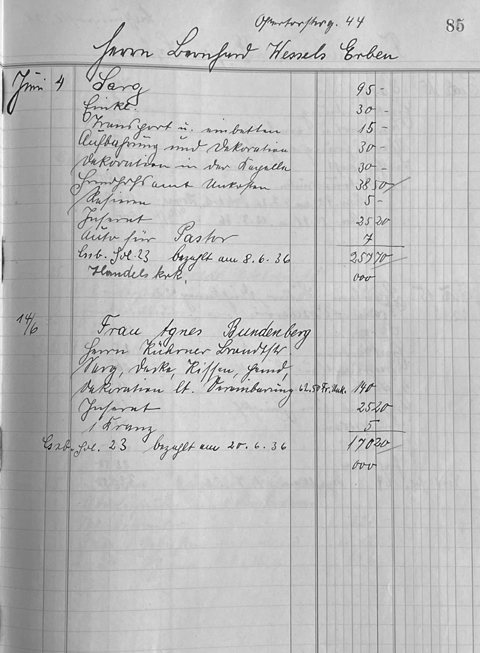 44 85
Herrn Bernhard Wessels Erben
Juni 4 Sarg 95 -
30 -
Transport u. einbetten 15 -
Aufbahrung und Dekoration 30 -
Dekoration in der Kapelle 30 -
Friedhofsamt Unkosten 38 50
Rasieren 5 -
Inserat 25 20
Auto für Pastor 7
Fol. 23 bezahlt am 8.6.36 257 70
Handels 000
14/6 Frau Agnes Bundenberg
Herrn
Sarg, Decke, Kissen, Hemd,
Dekoration lt. Vereinbarung 62.50 140
Inserat 25 20
1 Kranz 5
Fol. 23 bezahlt am 20.6.36 170 20
000